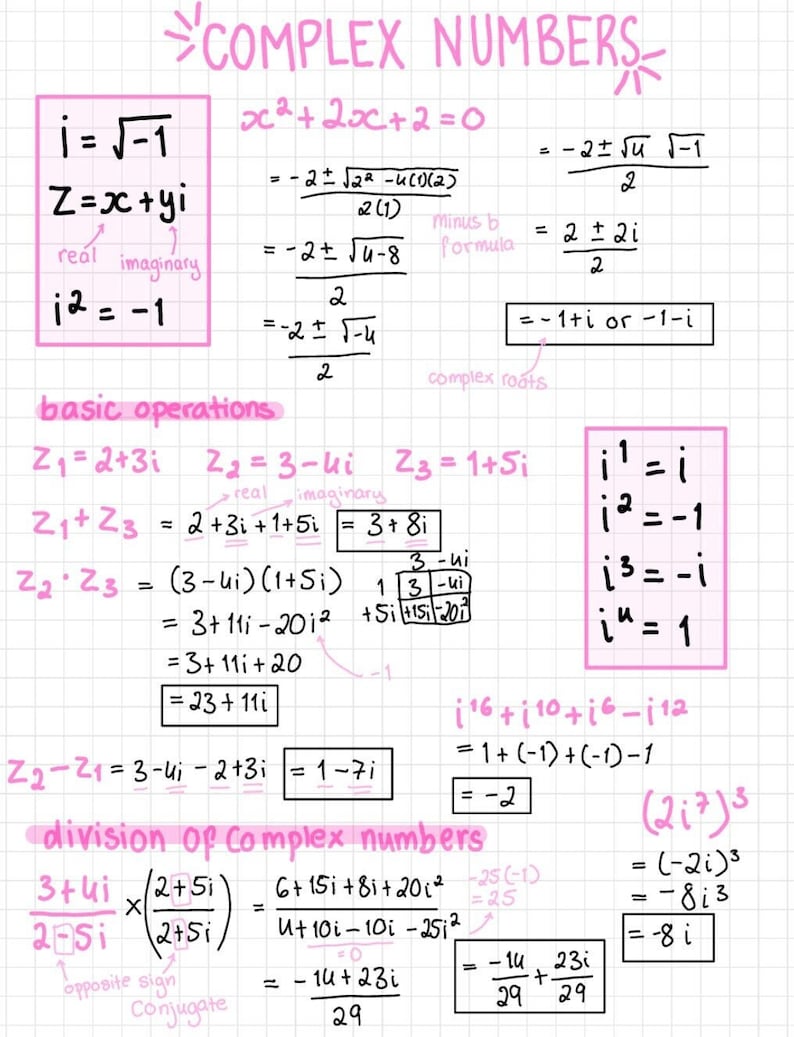 COMPLEX NUMBERS
i = √-1
z = x + yi
real imaginary
i² = -1
x² + 2x + 2 = 0
= -2 ± √(2² - 4(1)(2)) / 2(1)
minus b formula
= -2 ± √(4-8) / 2
= -2 ± √-4 / 2
= -2 ± √4 √-1 / 2
= 2 ± 2i / 2
= -1+i or -1-i
complex roots
basic operations
z₁ = 2+3i z₂ = 3-4i z₃ = 1+5i
real imaginary
z₁ + z₃ = 2+3i+1+5i = 3+8i
z₂ · z₃ = (3-4i)(1+5i)
= 3+11i-20i²
-1
= 3+11i+20
= 23+11i
3 -4i
1 3 -4i
+5i +15i -20i²
i¹ = i
i² = -1
i³ = -i
i⁴ = 1
z₂ - z₁ = 3-4i - 2+3i = 1-7i
i¹⁶ + i¹⁰ + i⁶ - i¹²
= 1+(-1)+(-1)-1
= -2
(2i⁷)³
= (-2i)³
= -8i³
= -8i
division of complex numbers
3+4i / 2-5i × (2+5i / 2+5i) = 6+15i+8i+20i² / 4+10i-10i-25i²
=0
-25(-1)
=25
opposite sign
conjugate
= -14+23i / 29
= -14/29 + 23i/29